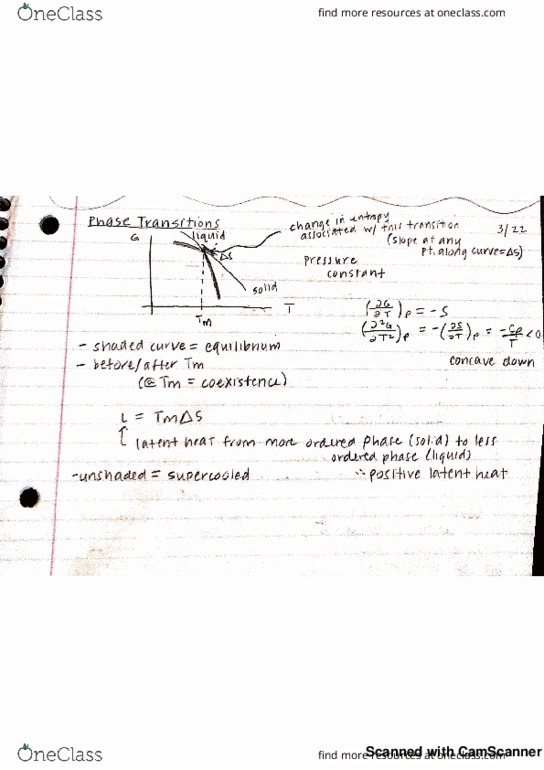 OneClass
find more resources at oneclass.com
Phase Transitions
3/22
change in entropy
associated w/ this transition
(slope at any
pt. along curve=ΔS)
pressure
constant
G
liquid
ΔS
solid
T
Tm
(∂G/∂T)P = -S
(∂²G/∂T²)P = -(∂S/∂T)P = -CP/T < 0
concave down
- shaded curve = equilibrium
- before/after Tm
(@ Tm = coexistence)
L = TmΔS
latent heat from more ordered phase (solid) to less
ordered phase (liquid)
∴ positive latent heat
-unshaded = supercooled
OneClass
find more resources at oneclass.com
Scanned with CamScanner